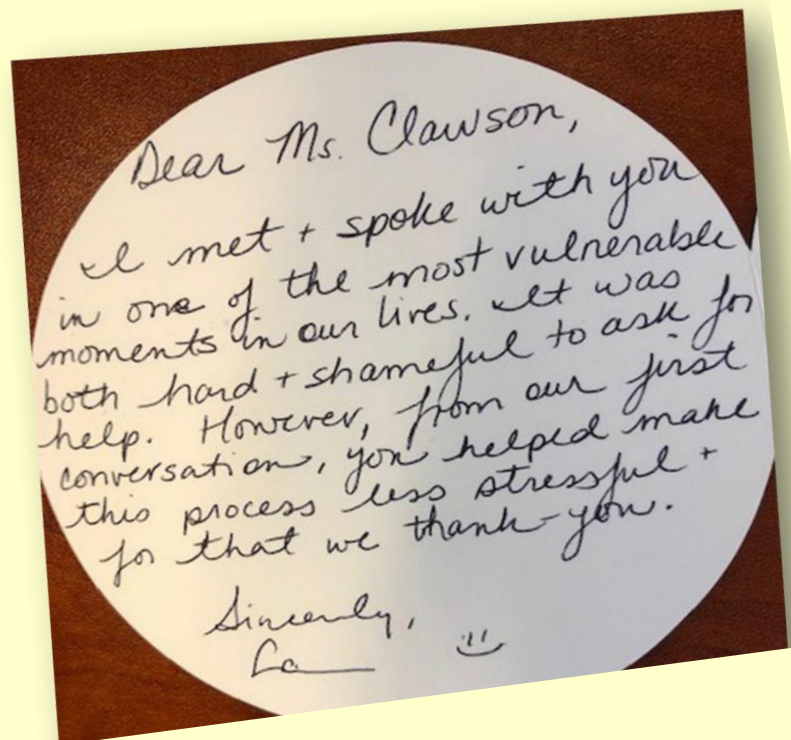 Dear Ms. Clawson,
I met + spoke with you
in one of the most vulnerable
moments in our lives. It was
both hard + shameful to ask for
help. However, from our first
conversation, you helped make
this process less stressful +
for that we thank-you.
Sincerely,